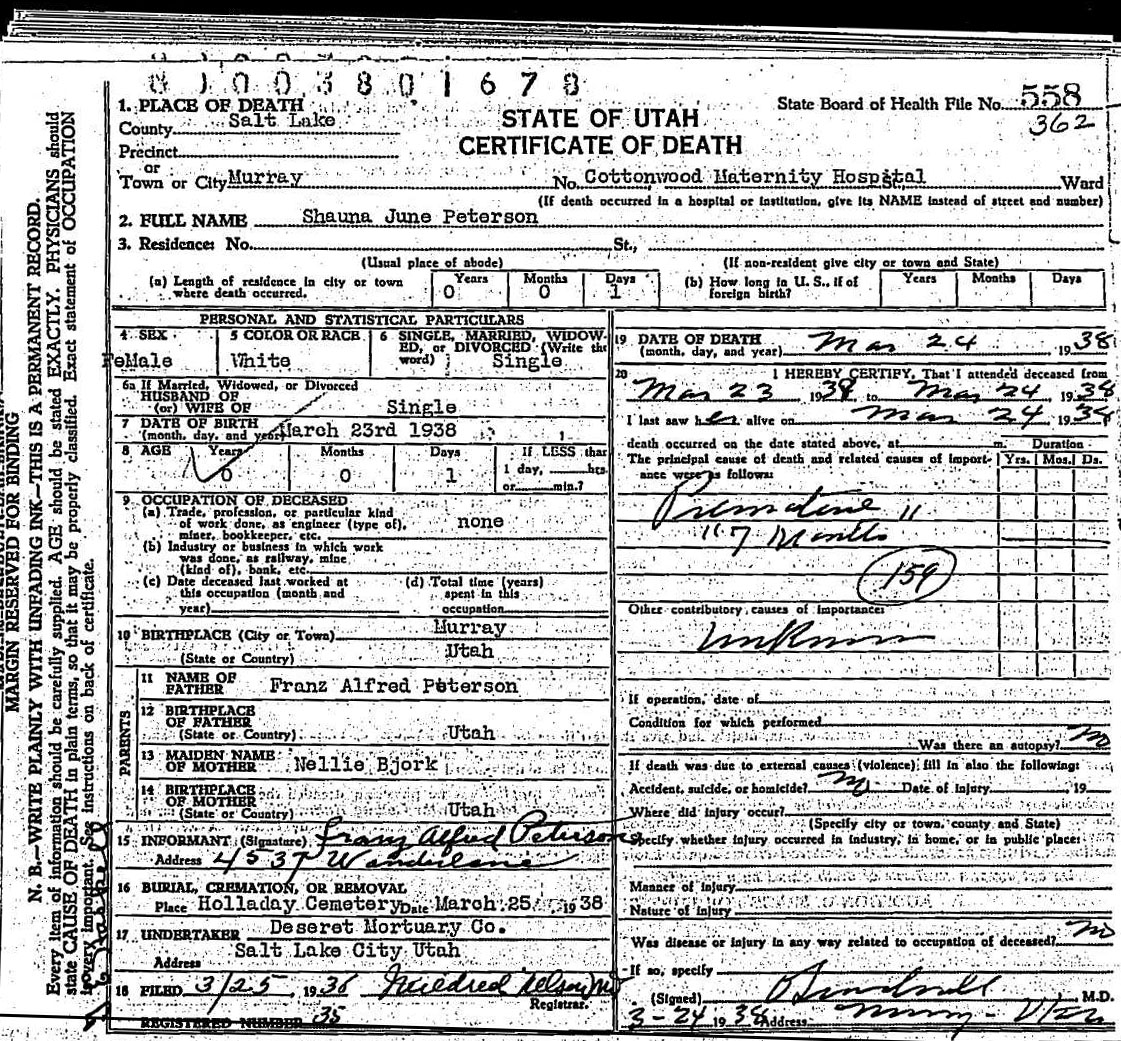 8 1 0 0 3 8 0 1 6 7 8
1. PLACE OF DEATH
County Salt Lake
Precinct
or
Town or City Murray
STATE OF UTAH
CERTIFICATE OF DEATH
State Board of Health File No. 558
362
No. Cottonwood Maternity Hospital St., Ward
(If death occurred in a hospital or institution, give its NAME instead of street and number)
2. FULL NAME Shauna June Peterson
3. Residence: No. St.,
(Usual place of abode) (If non-resident give city or town and State)
(a) Length of residence in city or town where death occurred. Years 0 Months 0 Days 1
(b) How long in U. S., if of foreign birth? Years Months Days
PERSONAL AND STATISTICAL PARTICULARS
4 SEX FeMale
5 COLOR OR RACE White
6 SINGLE, MARRIED, WIDOWED, or DIVORCED (Write the word) Single
6a If Married, Widowed, or Divorced
HUSBAND OF
(or) WIFE OF Single
7 DATE OF BIRTH
(month, day, and year) March 23rd 1938
8 AGE Years 0 Months 0 Days 1 If LESS than 1 day, hrs. or min.?
9 OCCUPATION OF DECEASED
(a) Trade, profession, or particular kind
of work done, as engineer (type of), none
miner, bookkeeper, etc.
(b) Industry or business in which work
was done, as railway, mine
(kind of), bank, etc.
(c) Date deceased last worked at
this occupation (month and
year)
(d) Total time (years)
spent in this
occupation
10 BIRTHPLACE (City or Town) Murray
(State or Country) Utah
PARENTS
11 NAME OF
FATHER Franz Alfred Peterson
12 BIRTHPLACE
OF FATHER
(State or Country) Utah
13 MAIDEN NAME
OF MOTHER Nellie Bjork
14 BIRTHPLACE
OF MOTHER
(State or Country) Utah
15 INFORMANT (Signature) Franz Alfred Peterson
Address 4537
16 BURIAL, CREMATION, OR REMOVAL
Place Holladay Cemetery Date March 25 1938
17 UNDERTAKER Deseret Mortuary Co.
Address Salt Lake City Utah
18 FILED 3/25, 1936 Mildred Nelson
Registrar.
REGISTERED NUMBER 35
19 DATE OF DEATH
(month, day, and year) Mar 24 1938
20 I HEREBY CERTIFY, That I attended deceased from
Mar 23 1938 to Mar 24, 1938
I last saw her alive on Mar 24 1938
death occurred on the date stated above, at m. Duration
The principal cause of death and related causes of importance were as follows: Yrs. Mos. Ds.
Premature
7 Months
159
Other contributory causes of importance:
Unknown
If operation, date of
Condition for which performed
Was there an autopsy? no
If death was due to external causes (violence) fill in also the following:
Accident, suicide, or homicide? no Date of injury 19
Where did injury occur?
(Specify city or town, county and State)
Specify whether injury occurred in industry, in home, or in public place:
Manner of injury
Nature of injury
Was disease or injury in any way related to occupation of deceased? no
If so, specify
(Signed) M.D.
3-24 1938 Address Murray - Utah
MARGIN RESERVED FOR BINDING
N. B.—WRITE PLAINLY WITH UNFADING INK—THIS IS A PERMANENT RECORD.
Every item of information should be carefully supplied. AGE should be stated EXACTLY. PHYSICIANS should
state CAUSE OF DEATH in plain terms, so that it may be properly classified. Exact statement of OCCUPATION
is very important. See instructions on back of certificate.